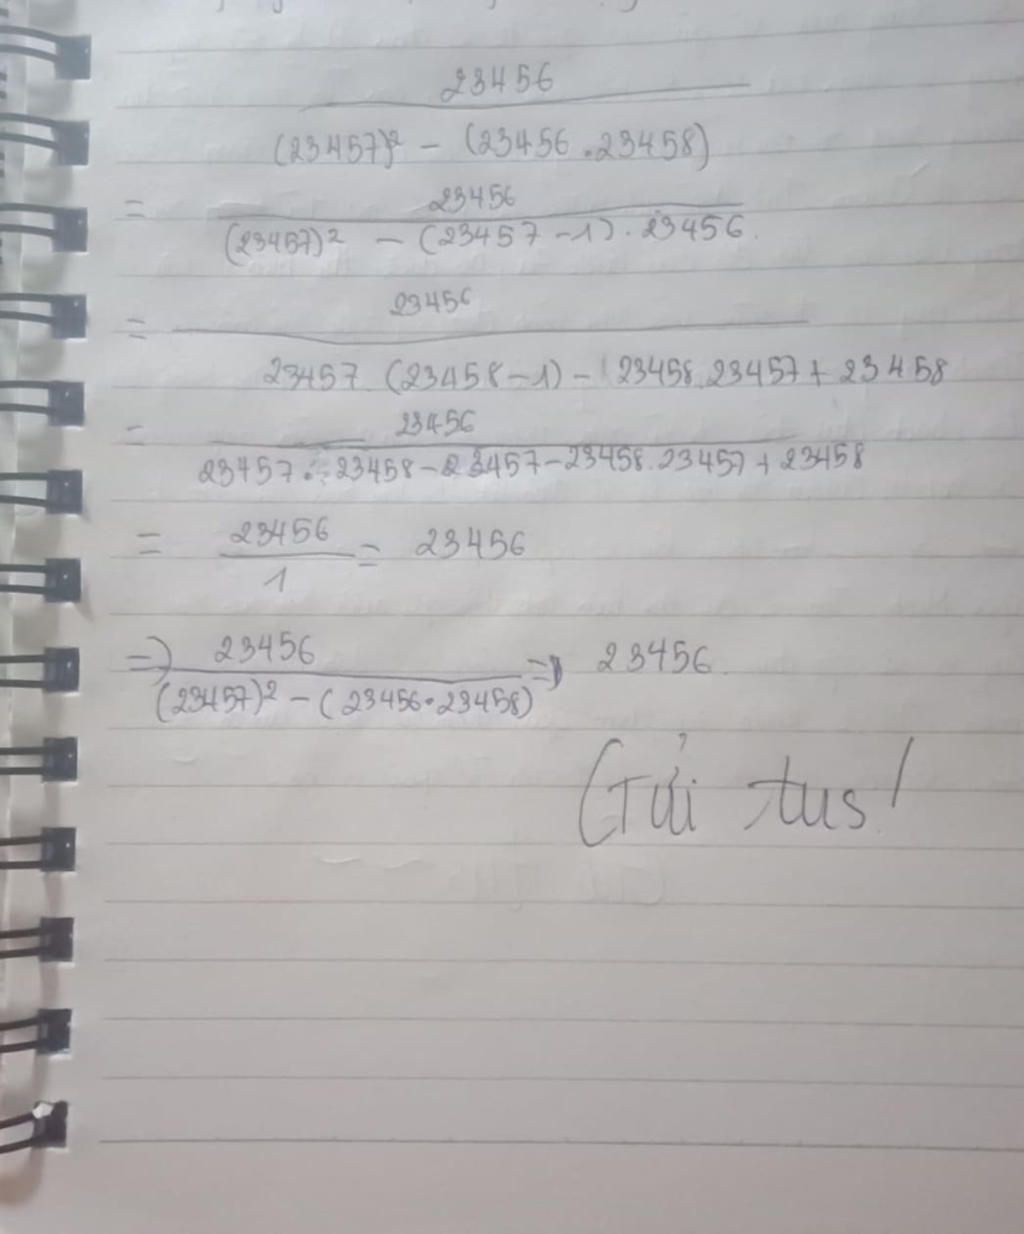 23456
(23457)² - (23456 . 23458)
= 23456
(23457)² - (23457 - 1) . 23456.
= 23456
23457 (23458 - 1) - 23458 . 23457 + 23458
= 23456
23457 . 23458 - 23457 - 23458 . 23457 + 23458
= 23456 = 23456
1
=> 23456 => 23456
(23457)² - (23456 . 23458)
Gửi tus!